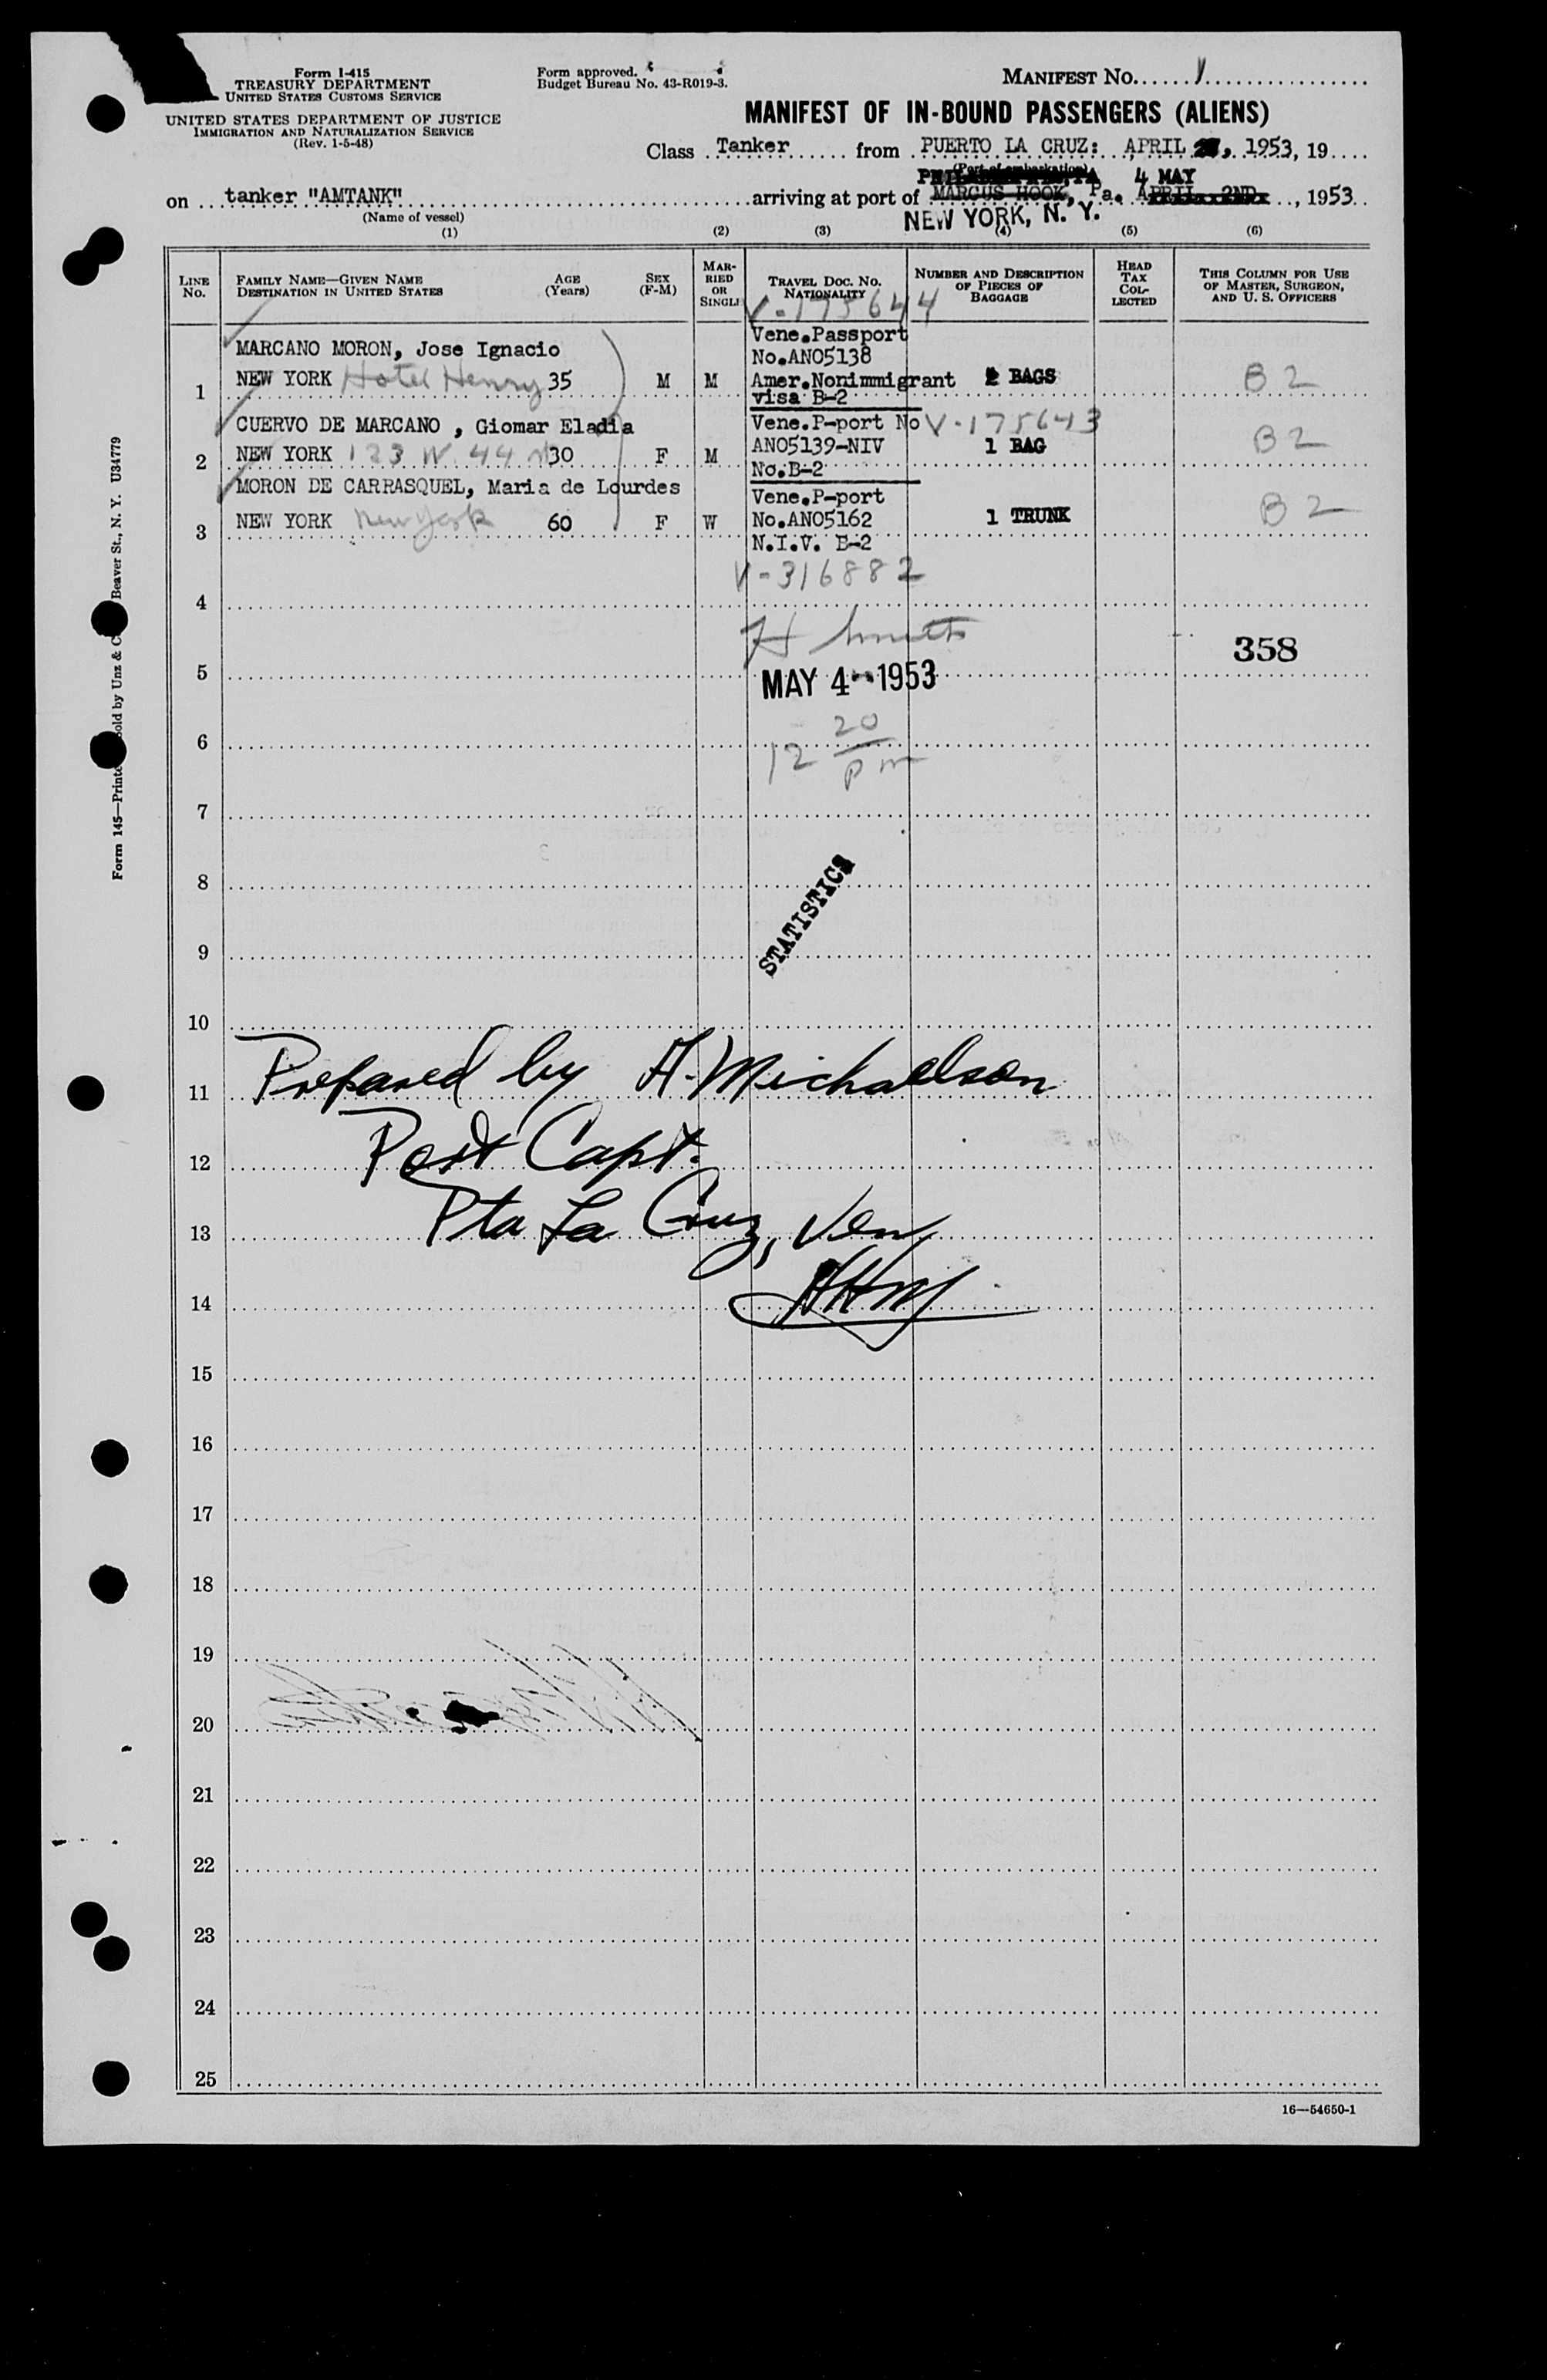 Form I-415
TREASURY DEPARTMENT
UNITED STATES CUSTOMS SERVICE
UNITED STATES DEPARTMENT OF JUSTICE
IMMIGRATION AND NATURALIZATION SERVICE
(Rev. 1-5-48)
Form approved.
Budget Bureau No. 43-R019-3.
MANIFEST No. 1
MANIFEST OF IN-BOUND PASSENGERS (ALIENS)
Class Tanker from PUERTO LA CRUZ: APRIL , 1953, 19
(Port of embarkation)
4 MAY
on tanker "AMTANK" arriving at port of MARCUS HOOK, Pa. APRIL 2ND , 1953
(Name of vessel)
NEW YORK, N. Y.
(1) (2) (3) (4) (5) (6)
LINE No.
FAMILY NAME—GIVEN NAME
DESTINATION IN UNITED STATES
AGE (Years)
SEX (F-M)
MARRIED OR SINGLE
TRAVEL DOC. No. NATIONALITY
NUMBER AND DESCRIPTION OF PIECES OF BAGGAGE
HEAD TAX COLLECTED
THIS COLUMN FOR USE OF MASTER, SURGEON, AND U. S. OFFICERS
V-175644
MARCANO MORON, Jose Ignacio
Vene.Passport
No.ANO5138
1 NEW YORK Hotel Henry 35 M M Amer.Nonimmigrant 2 BAGS B2
visa B-2
CUERVO DE MARCANO , Giomar Eladia Vene.P-port No V-175643
2 NEW YORK 123 W. 44 30 F M ANO5139-NIV 1 BAG B2
No.B-2
MORON DE CARRASQUEL, Maria de Lourdes Vene.P-port
3 NEW YORK New York 60 F W No.ANO5162 1 TRUNK B2
N.I.V. B-2
V-316882
4
358
5
MAY 4 1953
6
12 20 pm
7
8
STATISTICS
9
10
11 Prepared by A. Michaelson
12 Port Capt.
13 Pta La Cruz, Ven
14 AHM
15
16
17
18
19
20
21
22
23
24
25
16—54650-1
Form 145—Printed Sold by Unz & C Beaver St., N. Y. U34779